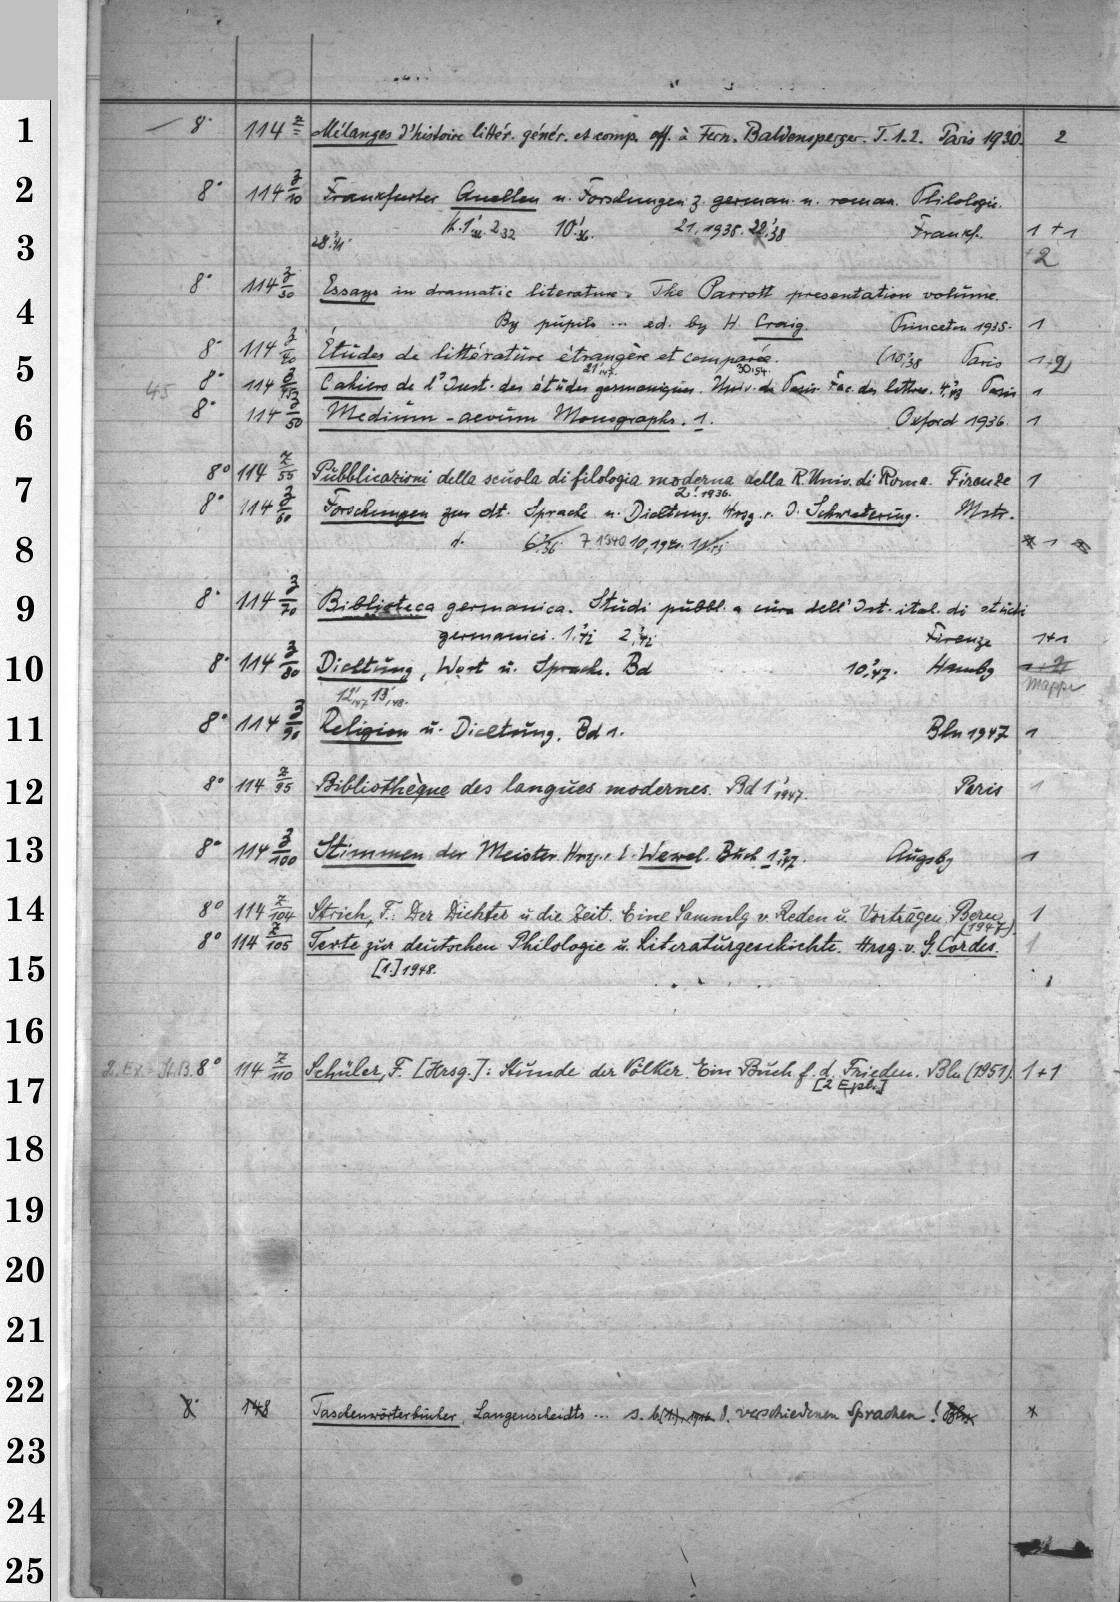 1 8° 114 z Mélanges d'histoire littér. génér. et comp. off. à Fern. Baldensperger. T. 1.2. Paris 1930. 2
2 8° 114 z/10 Frankfurter Quellen u. Forschungen z. german. u. roman. Philologie.
3 10,'36. 21. 1938. 22,'38 Frankf. 1 + 1
+2
8° 114 z/30 Essays in dramatic literature. The Parrott presentation volume.
4 By pupils ... ed. by H. Craig. Princeton 1935. 1
8° 114 z/40 Études de littérature étrangère et comparée. Paris
5 21,'47. 30,'54.
45 8° 114 z/453 Cahiers de l'Inst. des études germaniques. Univ. de Paris. Fac. des lettres. 4,'43 Paris 1
6 8° 114 z/50 Medium-aevum Monographs. 1. Oxford 1936. 1
7 8° 114 z/55 Pubblicazioni della scuola di filologia moderna della R. Univ. di Roma. Firenze 1
2! 1936.
8° 114 z/60 Forschungen zur dt. Sprache u. Dichtung. Hrsg. v. J. Schwietering. Mstr.
8 6,'36 7. 1940 1
9 8° 114 z/70 Biblioteca germanica. Studi pubbl. a cura dell' Ist. ital. di studi
germanici. 1,'42 2,'42 Firenze 1+1
10 8° 114 z/80 Dichtung, Wort u. Sprache. Bd 10,'47. Hambg
12,'47 13,'48. Mappe
11 8° 114 z/90 Religion u. Dichtung. Bd 1. Bln 1947 1
12 8° 114 z/95 Bibliothèque des langues modernes. Bd 1,'1947. Paris 1
13 8° 114 z/100 Stimmen der Meister. Hrsg. v. L. Wewel. Buch 1,'47. Augsbg 1
14 8° 114 z/104 Strich, F.: Der Dichter u. die Zeit. Eine Sammlg v. Reden u. Vorträgen. Bern 1
(1947).
8° 114 z/105 Texte zur deutschen Philologie u. Literaturgeschichte. Hrsg. v. G. Cordes. 1
15 [1.] 1948.
16
2. Ex. St.B. 8° 114 z/110 Schüler, F. [Hrsg.]: Stunde der Völker. Ein Buch f. d. Frieden. Bln (1951). 1+1
17 [2 Expl.]
18
19
20
21
22
8° 148 Taschenwörterbücher, Langenscheidts ... s. b. d. verschiedenen Sprachen!
23
24
25